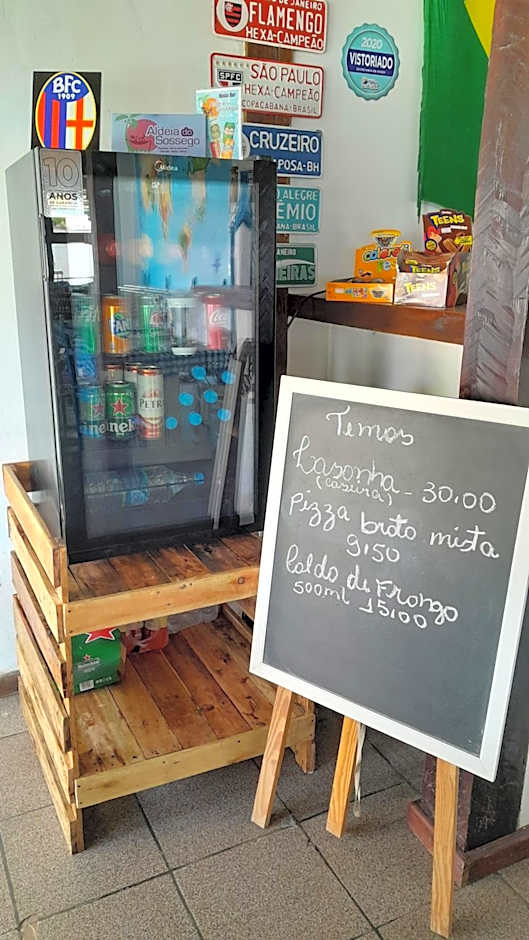 DE JANEIRO
FLAMENGO
HEXA-CAMPEÃO
SPFC
SÃO PAULO
HEXA-CAMPEÃO
COPACABANA-BRASIL
2020
VISTORIADO
BFC
1909
Aldeia do
Sossego
CRUZEIRO
APOSA-BH
10
ANOS
Midea
ALEGRE
ÊMIO
BANA-BRASIL
ANEIRO
EIRAS
TEENS
TEENS
TEENS
Heineken
Temos
Lasonha
(caseira) - 30,00
Pizza broto mista
9,50
Caldo de Frongo
500ml 15,00